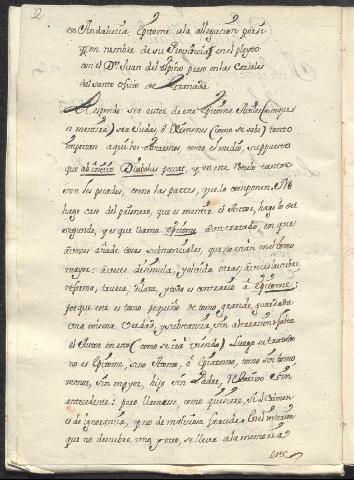 2
en Andalucia Epitome a la allegacion por si
y en nombre de su Provincia en el pleyto
con el Dr. Juan del Espino preso en las Carceles
del santo oficio de Granada
Respondo: sea autor de este Epitome
es mentira) sea Judas, ó Ximenez (como se sabe) tanto
importan aqui los extremos, como el medio, supuesto
que ab initio Diabolus peccat, y en este
son los pecados, como las partes, que lo componen. No
hago caso del primero, que es mentir el Autor, hago lo del
segundo, y es que llama Epitome a un tratado, en que
á veces añade cosas substanciales, que no están en el tomo
mayor: á veces disimula, y olvida otras; á veces
reforma, trueca, dilata, y todo es contrario á Epitome;
porque este es tomo pequeño de tomo grande, guardada
una misma verdad, y substancia sin alteracion, y falta
el Autor en esto (como se irá viendo) Luego su tratado
no es Epitome, sino Atomo, ó Epiatomo, tomo sin tomo
menor, sin mayor, hijo sin Padre, Relativo sin
antecedente: pero llamese, como quisiere, si el Crimen
es de ignorancia, y no de malicia y fraude. En el interim
que no descubre uno, y otro, se lleva a la memoria
este